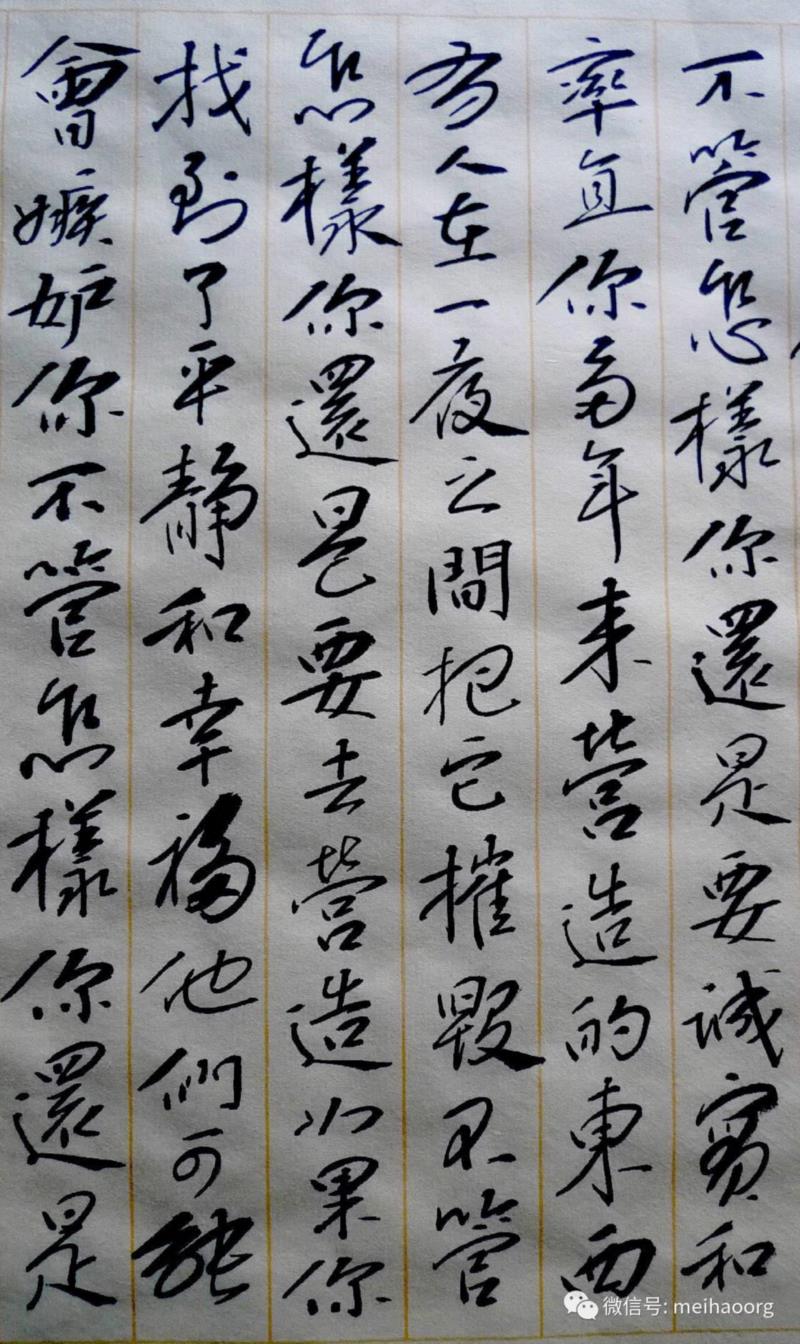 不管怎樣你還是要誠實和
率直你多年来營造的東西
有人在一夜之間把它摧毁不管
怎樣你還是要去營造如果你
找到了平静和幸福他們可能
會嫉妒你不管怎樣你還是
微信号: meihaoorg